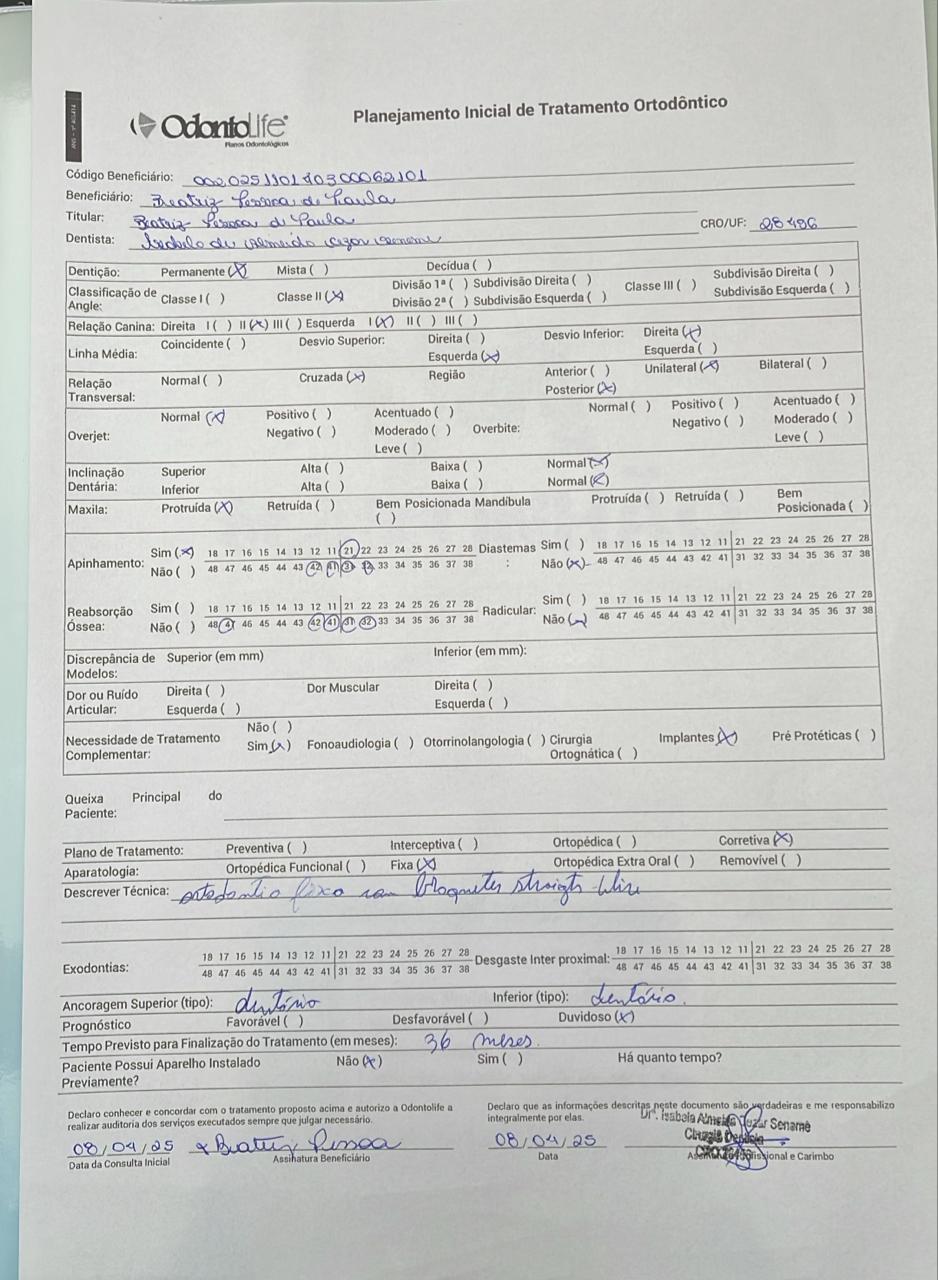 OdontoLife
Planos Odontológicos
Planejamento Inicial de Tratamento Ortodôntico
Código Beneficiário:
Beneficiário: Beatriz Pessoa de Paula
Titular: Beatriz Pessoa de Paula
Dentista: CRO/UF: 28496
Dentição: Permanente (X) Mista ( ) Decídua ( )
Classificação de Angle: Classe I ( ) Classe II (X) Divisão 1ª ( ) Subdivisão Direita ( ) Classe III ( ) Subdivisão Direita ( )
Divisão 2ª ( ) Subdivisão Esquerda ( ) Subdivisão Esquerda ( )
Relação Canina: Direita I ( ) II (X) III ( ) Esquerda I (X) II ( ) III ( )
Linha Média: Coincidente ( ) Desvio Superior: Direita ( ) Desvio Inferior: Direita (X)
Esquerda (X) Esquerda ( )
Relação Transversal: Normal ( ) Cruzada (X) Região Anterior ( ) Unilateral (X) Bilateral ( )
Posterior (X)
Overjet: Normal (X) Positivo ( ) Acentuado ( ) Overbite: Normal ( ) Positivo ( ) Acentuado ( )
Negativo ( ) Moderado ( ) Negativo ( ) Moderado ( )
Leve ( ) Leve ( )
Inclinação Dentária: Superior Alta ( ) Baixa ( ) Normal (X)
Inferior Alta ( ) Baixa ( ) Normal (X)
Maxila: Protruída (X) Retruída ( ) Bem Posicionada Mandíbula ( ) Protruída ( ) Retruída ( ) Bem Posicionada ( )
Apinhamento: Sim (X) 18 17 16 15 14 13 12 11 21 22 23 24 25 26 27 28 Diastemas : Sim ( ) 18 17 16 15 14 13 12 11 21 22 23 24 25 26 27 28
Não ( ) 48 47 46 45 44 43 42 41 31 32 33 34 35 36 37 38 Não (X) 48 47 46 45 44 43 42 41 31 32 33 34 35 36 37 38
Reabsorção Óssea: Sim ( ) 18 17 16 15 14 13 12 11 21 22 23 24 25 26 27 28 Radicular: Sim ( ) 18 17 16 15 14 13 12 11 21 22 23 24 25 26 27 28
Não ( ) 48 47 46 45 44 43 42 41 31 32 33 34 35 36 37 38 Não (X) 48 47 46 45 44 43 42 41 31 32 33 34 35 36 37 38
Discrepância de Modelos: Superior (em mm) Inferior (em mm):
Dor ou Ruído Articular: Direita ( ) Dor Muscular Direita ( )
Esquerda ( ) Esquerda ( )
Necessidade de Tratamento Complementar: Não ( )
Sim (X) Fonoaudiologia ( ) Otorrinolangologia ( ) Cirurgia Ortognática ( ) Implantes (X) Pré Protéticas ( )
Queixa Principal do Paciente:
Plano de Tratamento: Preventiva ( ) Interceptiva ( ) Ortopédica ( ) Corretiva (X)
Aparatologia: Ortopédica Funcional ( ) Fixa (X) Ortopédica Extra Oral ( ) Removível ( )
Descrever Técnica: ortodontia fixa com
Exodontias: 18 17 16 15 14 13 12 11 21 22 23 24 25 26 27 28 Desgaste Inter proximal: 18 17 16 15 14 13 12 11 21 22 23 24 25 26 27 28
48 47 46 45 44 43 42 41 31 32 33 34 35 36 37 38 48 47 46 45 44 43 42 41 31 32 33 34 35 36 37 38
Ancoragem Superior (tipo): dentário Inferior (tipo): dentário.
Prognóstico Favorável ( ) Desfavorável ( ) Duvidoso (X)
Tempo Previsto para Finalização do Tratamento (em meses): 36 meses.
Paciente Possui Aparelho Instalado Previamente? Não (X) Sim ( ) Há quanto tempo?
Declaro conhecer e concordar com o tratamento proposto acima e autorizo a Odontolife a
realizar auditoria dos serviços executados sempre que julgar necessário.
Declaro que as informações descritas neste documento são verdadeiras e me responsabilizo
integralmente por elas.
08/04/25 Beatriz Pessoa
Data da Consulta Inicial Assinatura Beneficiário
08/04/25
Data